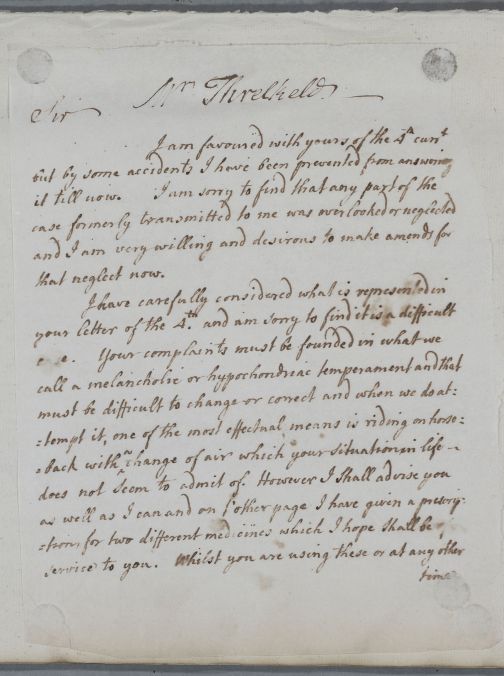 Mr. Threlkeld
Sir
I am favour'd with yours of the 4th curt.
but by some accidents I have been prevented from answering
it till now. I am sorry to find that any part of the
case formerly transmitted to me was overlooked or neglected
and I am very willing and desirous to make amends for
that neglect now.
I have carefully considered what is represented in
your letter of the 4th. and am sorry to find it is a difficult
Your complaints must be founded in what we
call a melancholic or hypochondriac temperament and that
must be difficult to change or correct and when we do at:
:tempt it, one of the most effectual means is riding on horse:
:back with change of air which your situation in life
does not seem to admit of. However I shall advise you
as well as I can and on other page I have given a prescrip:
:tion for two different medicines which I hope shall be
service to you. Whilst you are using these or at any other
time